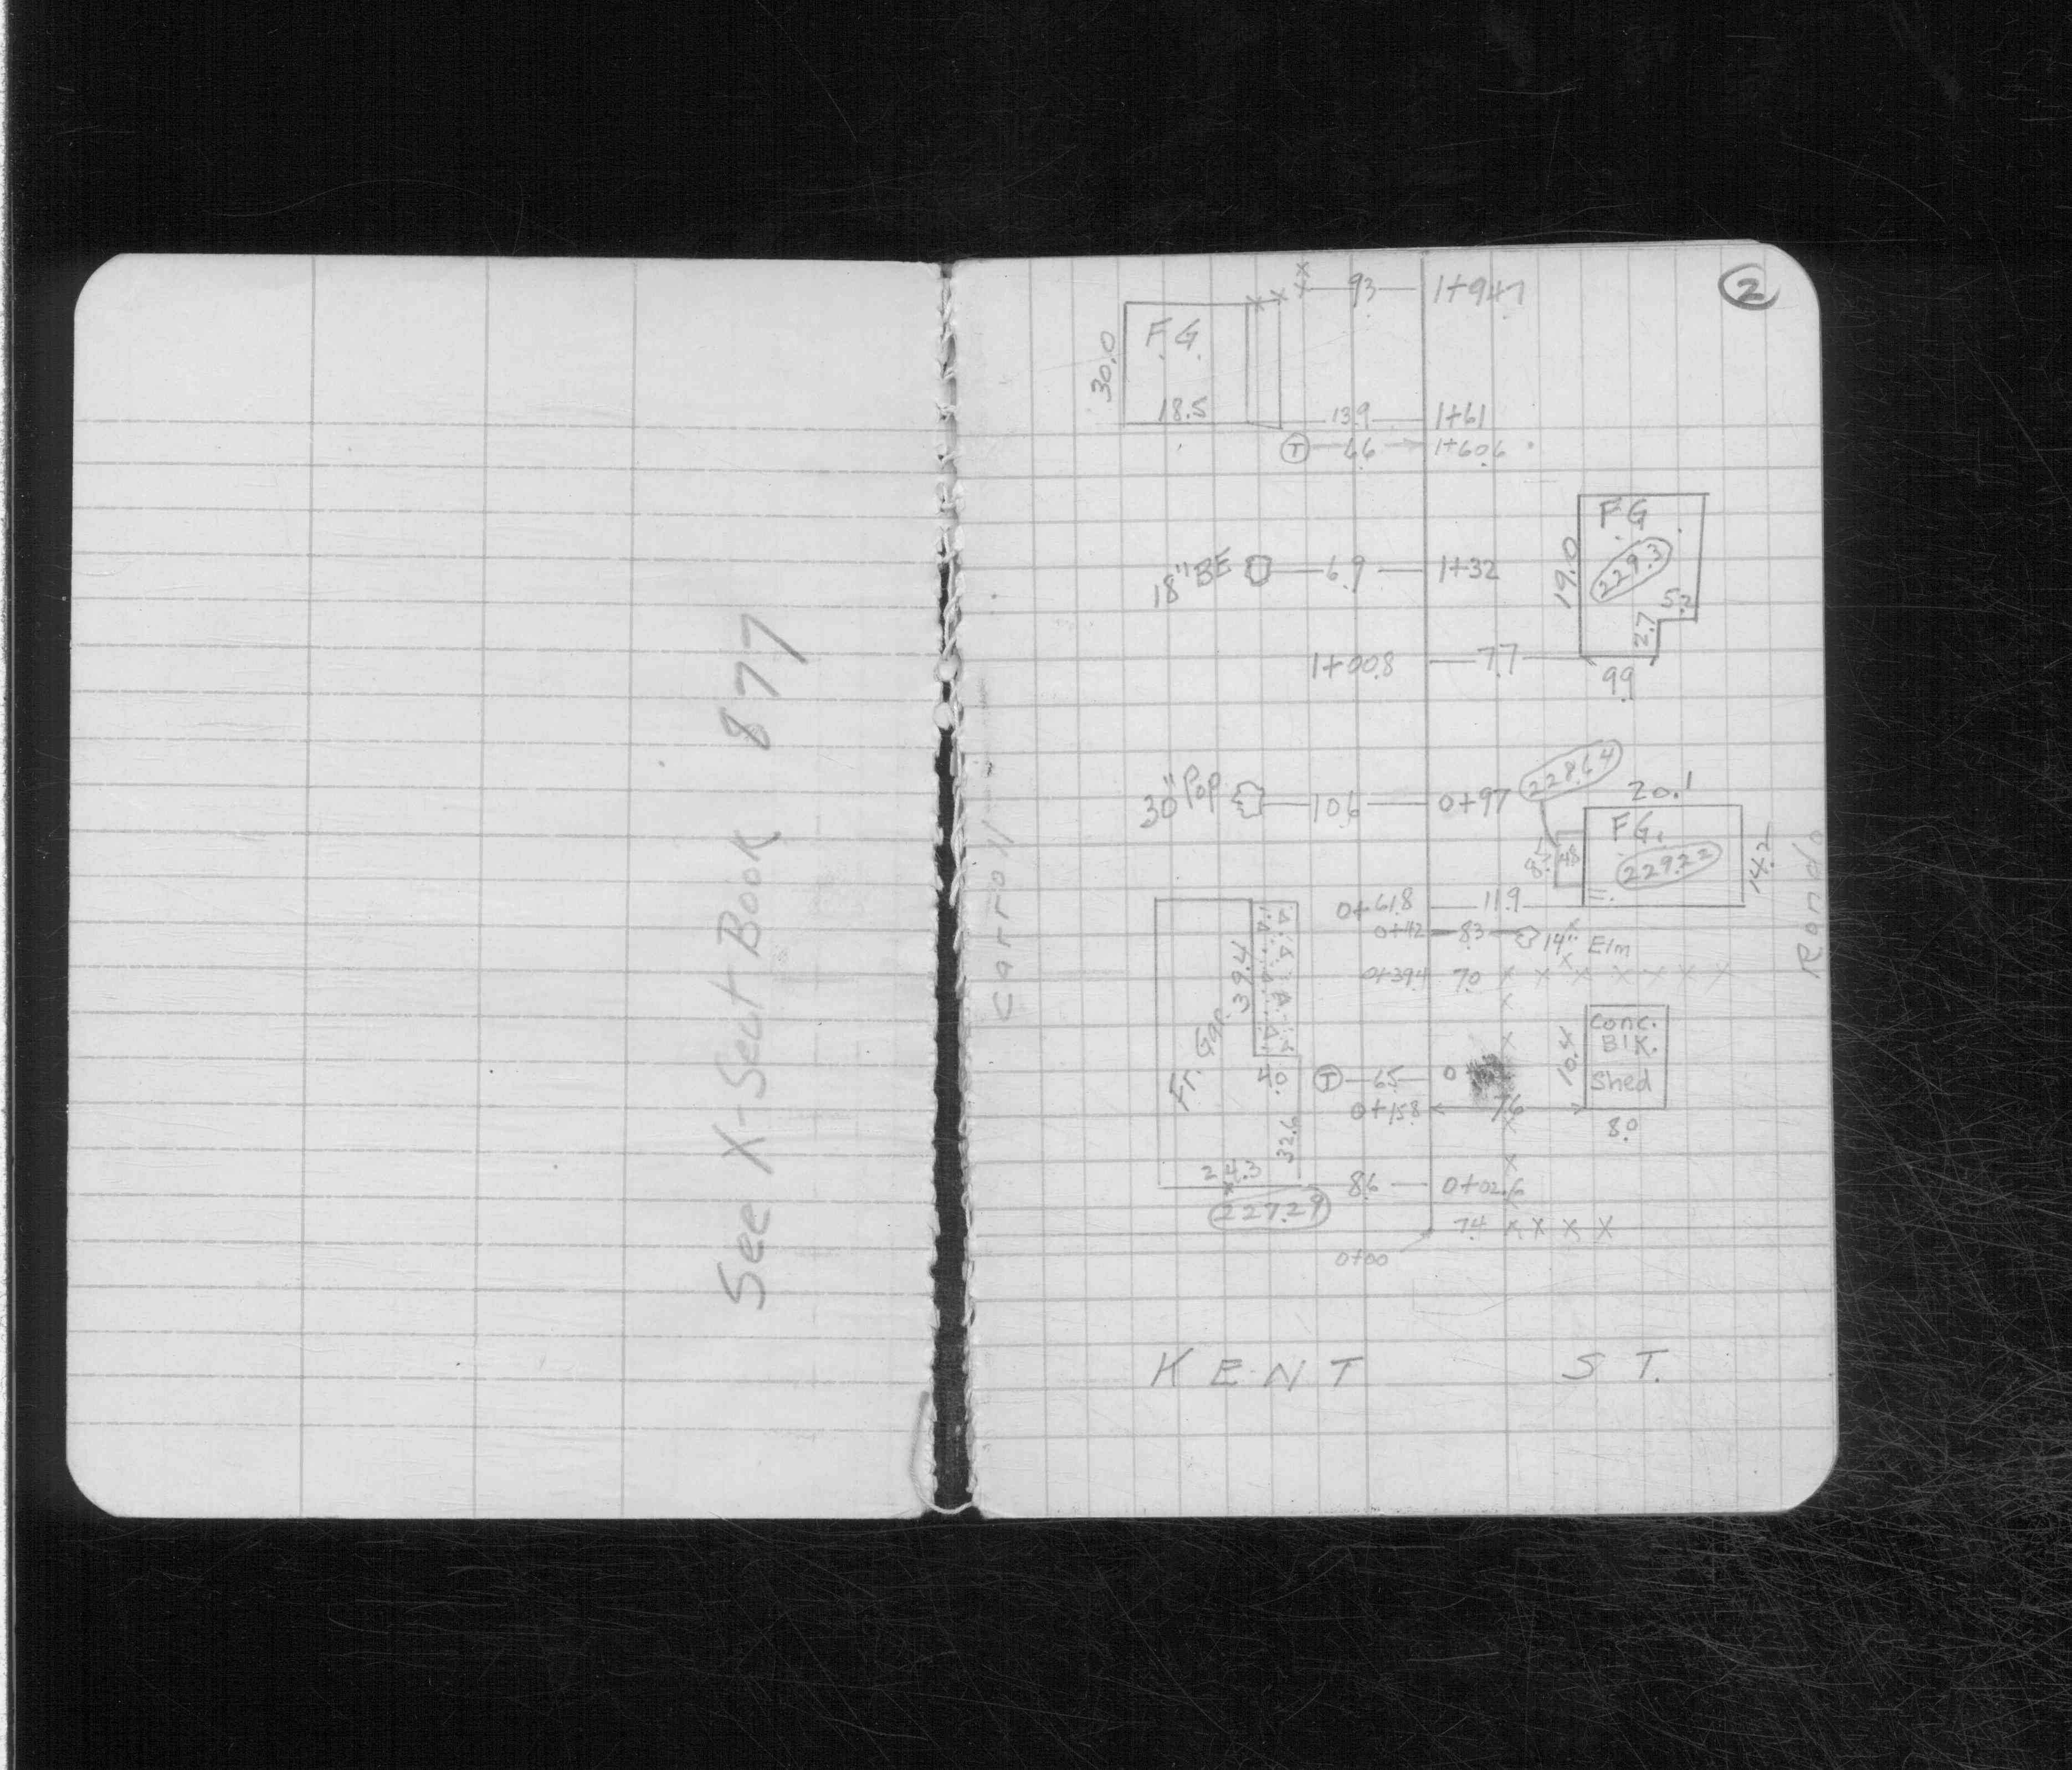 See X-Sect Book 877
Carroll
2
93 1+947
F.G.
30.0
18.5
13.9 1+61
T 6.6 1+60.6
FG
229.3
19.0
5.2
2.7
18" BE 6.9 1+32
1+00.8 7.7
9.9
228.64
30" Pop 10.6 0+97
20.1
F.G.
229.22
14.2
Rondo
0+61.8 11.9
0+42 8.3 14" Elm
0+39.4 7.0
39.4
Fr. Gar.
Conc.
Blk.
Shed
10.4
4.0 T 6.5 0
0+15.8 7.6
8.0
32.6
24.3
8.6 0+02.6
227.29
7.4
0+00
KENT ST.